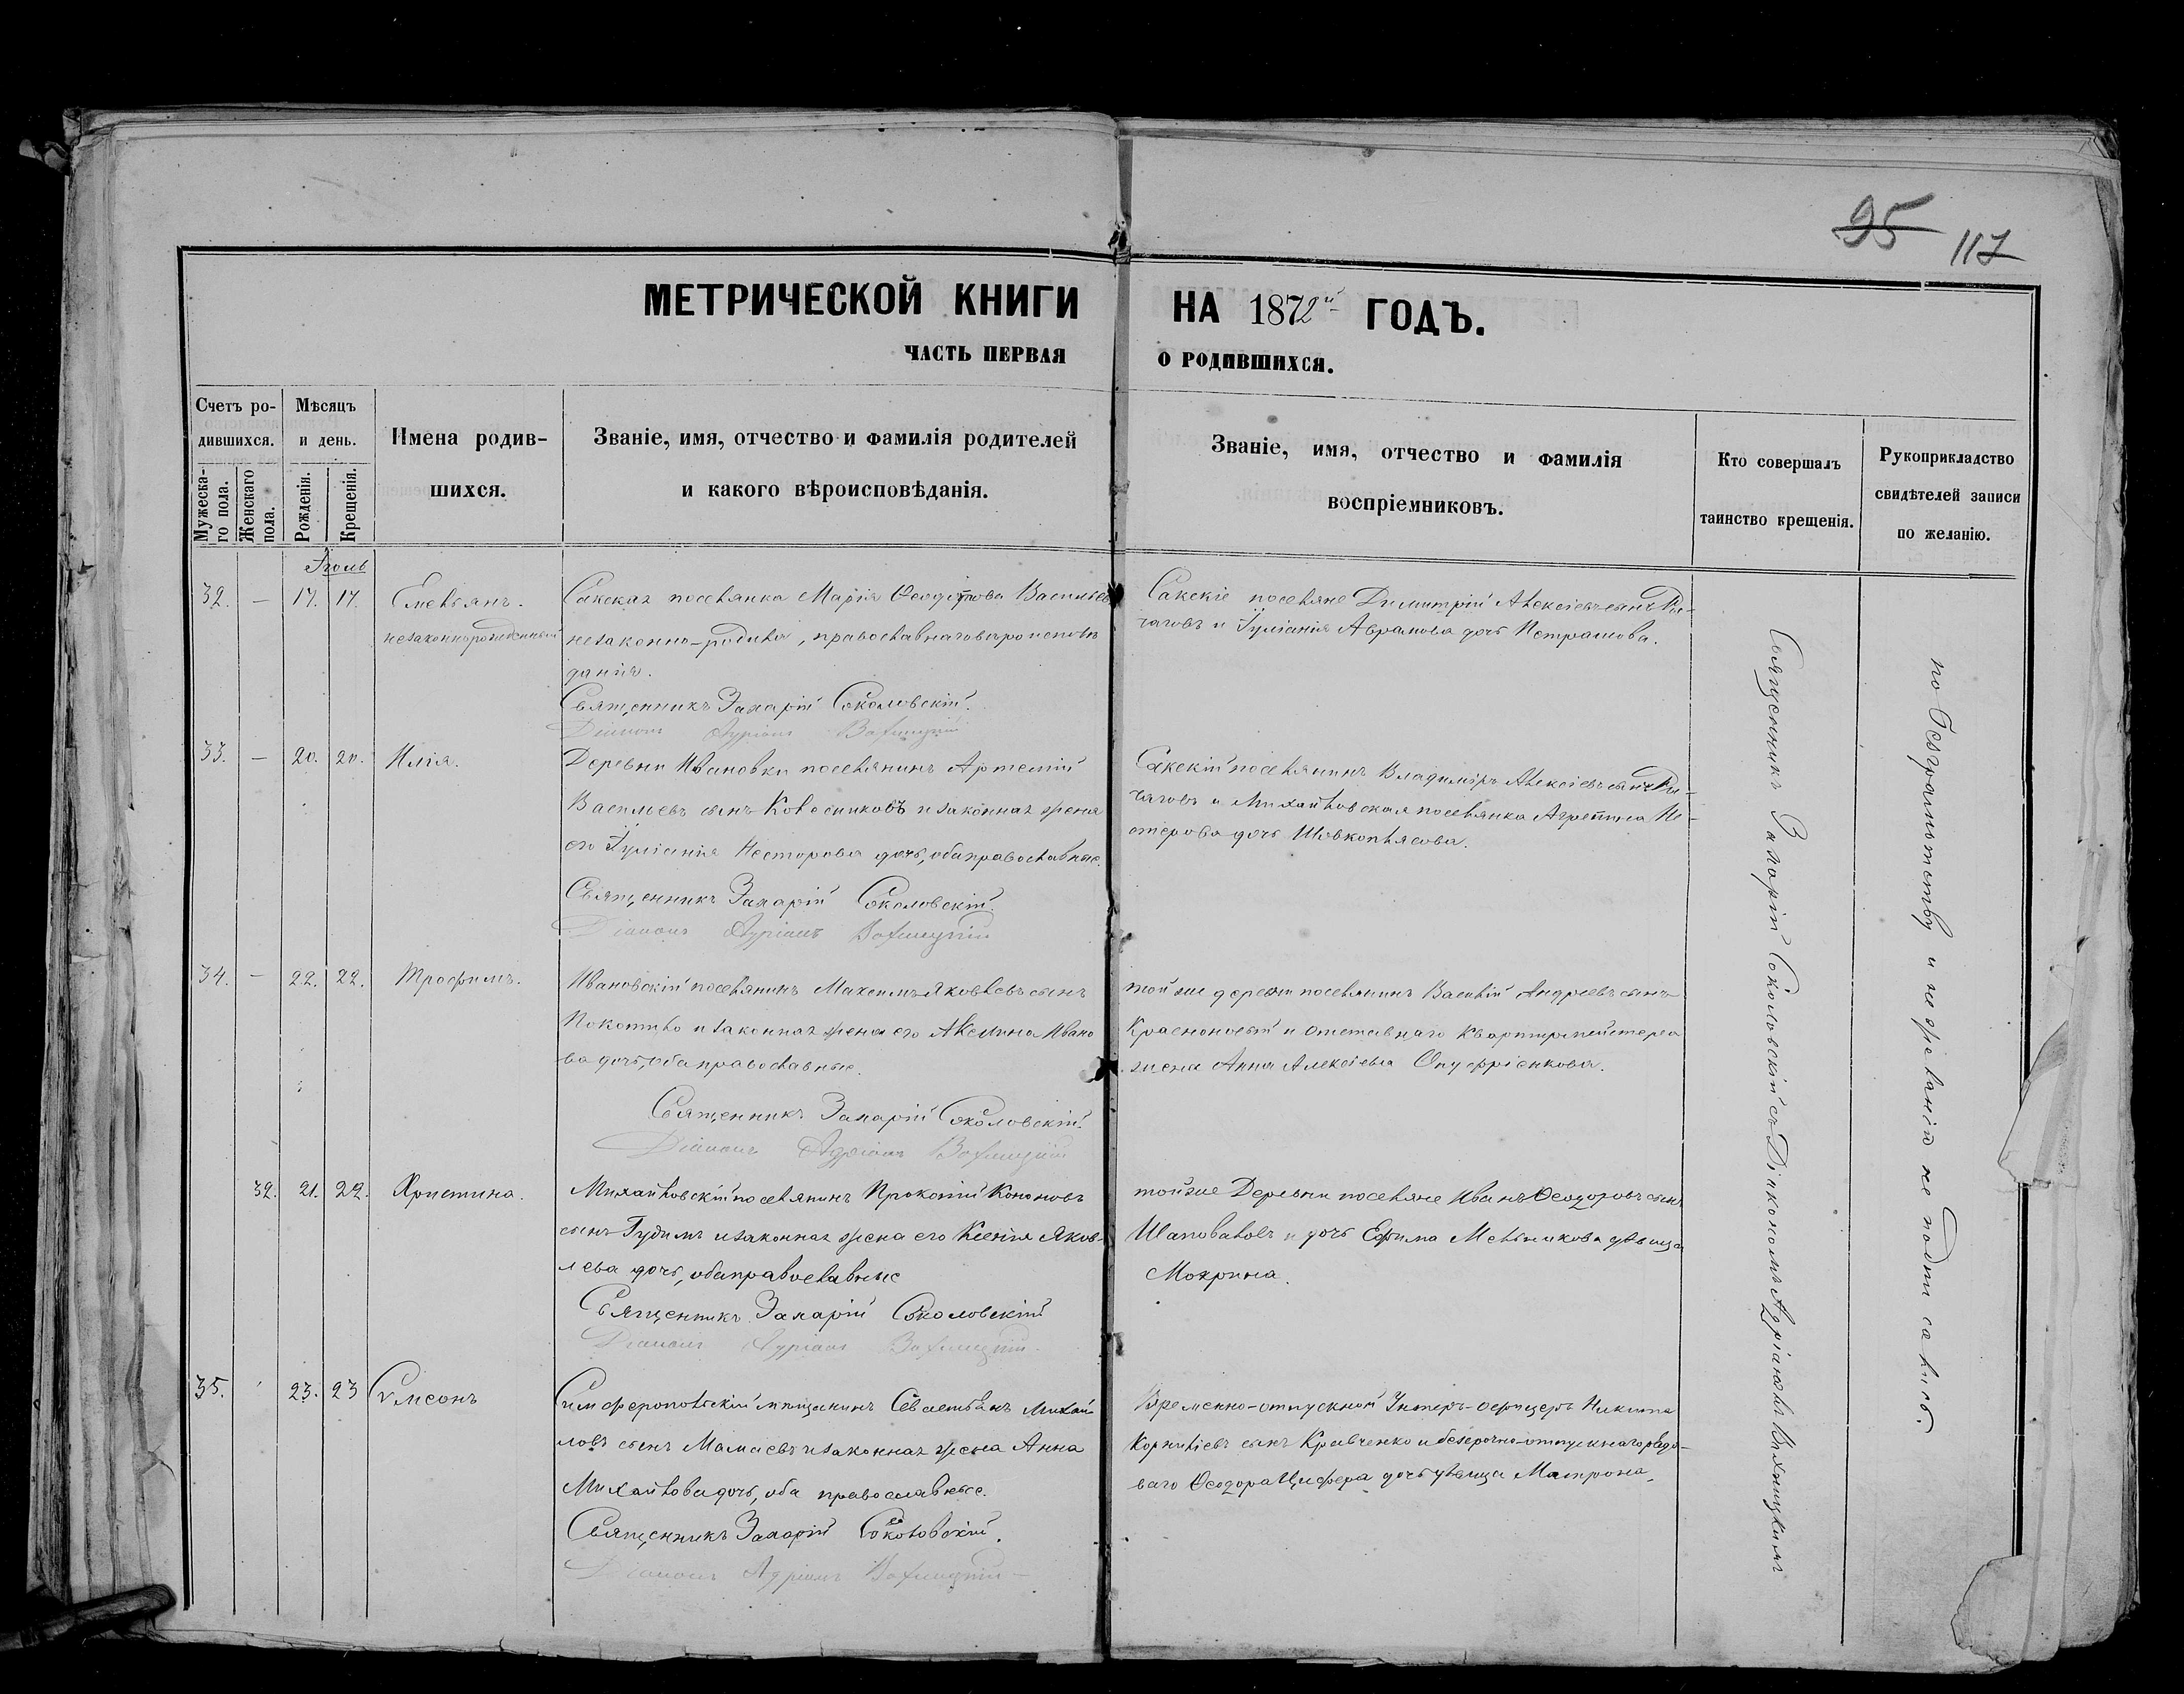 95 117
МЕТРИЧЕСКОЙ КНИГИ НА 1872й ГОДЪ.
ЧАСТЬ ПЕРВАЯ О РОДИВШИХСЯ.
Счетъ родившихся.
Мужескаго пола.
Женскаго пола.
Мѣсяцъ и день.
Рожденія.
Крещенія.
Имена родившихся.
Званіе, имя, отчество и фамилія родителей
и какого вѣроисповѣданія.
Званіе, имя, отчество и фамилія
воспріемниковъ.
Кто совершалъ
таинство крещенія.
Рукоприкладство
свидѣтелей записи
по желанію.
Іюль
32. — 17. 17. Емеліянъ.
незаконнорожденный
Сакская поселянка Марія Ѳеодорова Васильева
незаконно-родила, православнаго вѣроисповѣ
данія.
Священникъ Захарій Соколовскій.
Діаконъ Адріанъ
Сакскіе поселяне Димитрій Алексіевъ сынъ Ры-
чаговъ и Іуліанія Аврамова дочь Петрашова.
33. — 20. 20. Илія.
Деревни Ивановки поселянинъ Артемій
Васильевъ сынъ Колесниковъ и законная жена
его Іуліанія Несторова дочь, оба православные.
Священникъ Захарій Соколовскій.
Діаконъ Адріанъ
Сакскій поселянинъ Владиміръ Алексіевъ сынъ Ры-
чаговъ и Михайловская поселянка Агрепина Не-
стерова дочь Шовкоплясова.
34. — 22. 22. Трофимъ.
Ивановскій поселянинъ Максимъ Яковлевъ сынъ
Покотило и законная жена его Акелина Ивано
ва дочь, оба православные.
Священникъ Захарій Соколовскій.
Діаконъ Адріанъ
той же деревни поселянинъ Василій Андреевъ сынъ
Красноносый и отставнаго квартирмейстера
жена Анна Алексіева Онуфріенкова.
32. 21. 22. Христина.
Михайловскій поселянинъ Прокопій Кононовъ
сынъ Гудимъ и законная жена его Ксенія Яков-
лева дочь, оба православные
Священникъ Захарій Соколовскій
Діаконъ Адріанъ
той же Деревни поселяне Иванъ Ѳеодоровъ сынъ
Шаповаловъ и дочь Ефима Мельникова дѣвица
Мокрина.
35. 23. 23 Сѵмеонъ
Симферопольскій мѣщанинъ Севастьянъ Михай
ловъ сынъ Мамаевъ и законная жена Анна
Михайлова дочь, оба православные.
Священникъ Захарій Соколовскій.
Діаконъ Адріанъ
Временно-отпускной Унтеръ-офицеръ Никита
Корнилієвъ сынъ Кравченко и безсрочно-отпускнаго рядо-
ваго Ѳеодора Цифера дочь дѣвица Матрона.
Священникъ Захарій Соколовскій съ Діакономъ Адріаномъ
по безграмотству и не желанію не подписались.